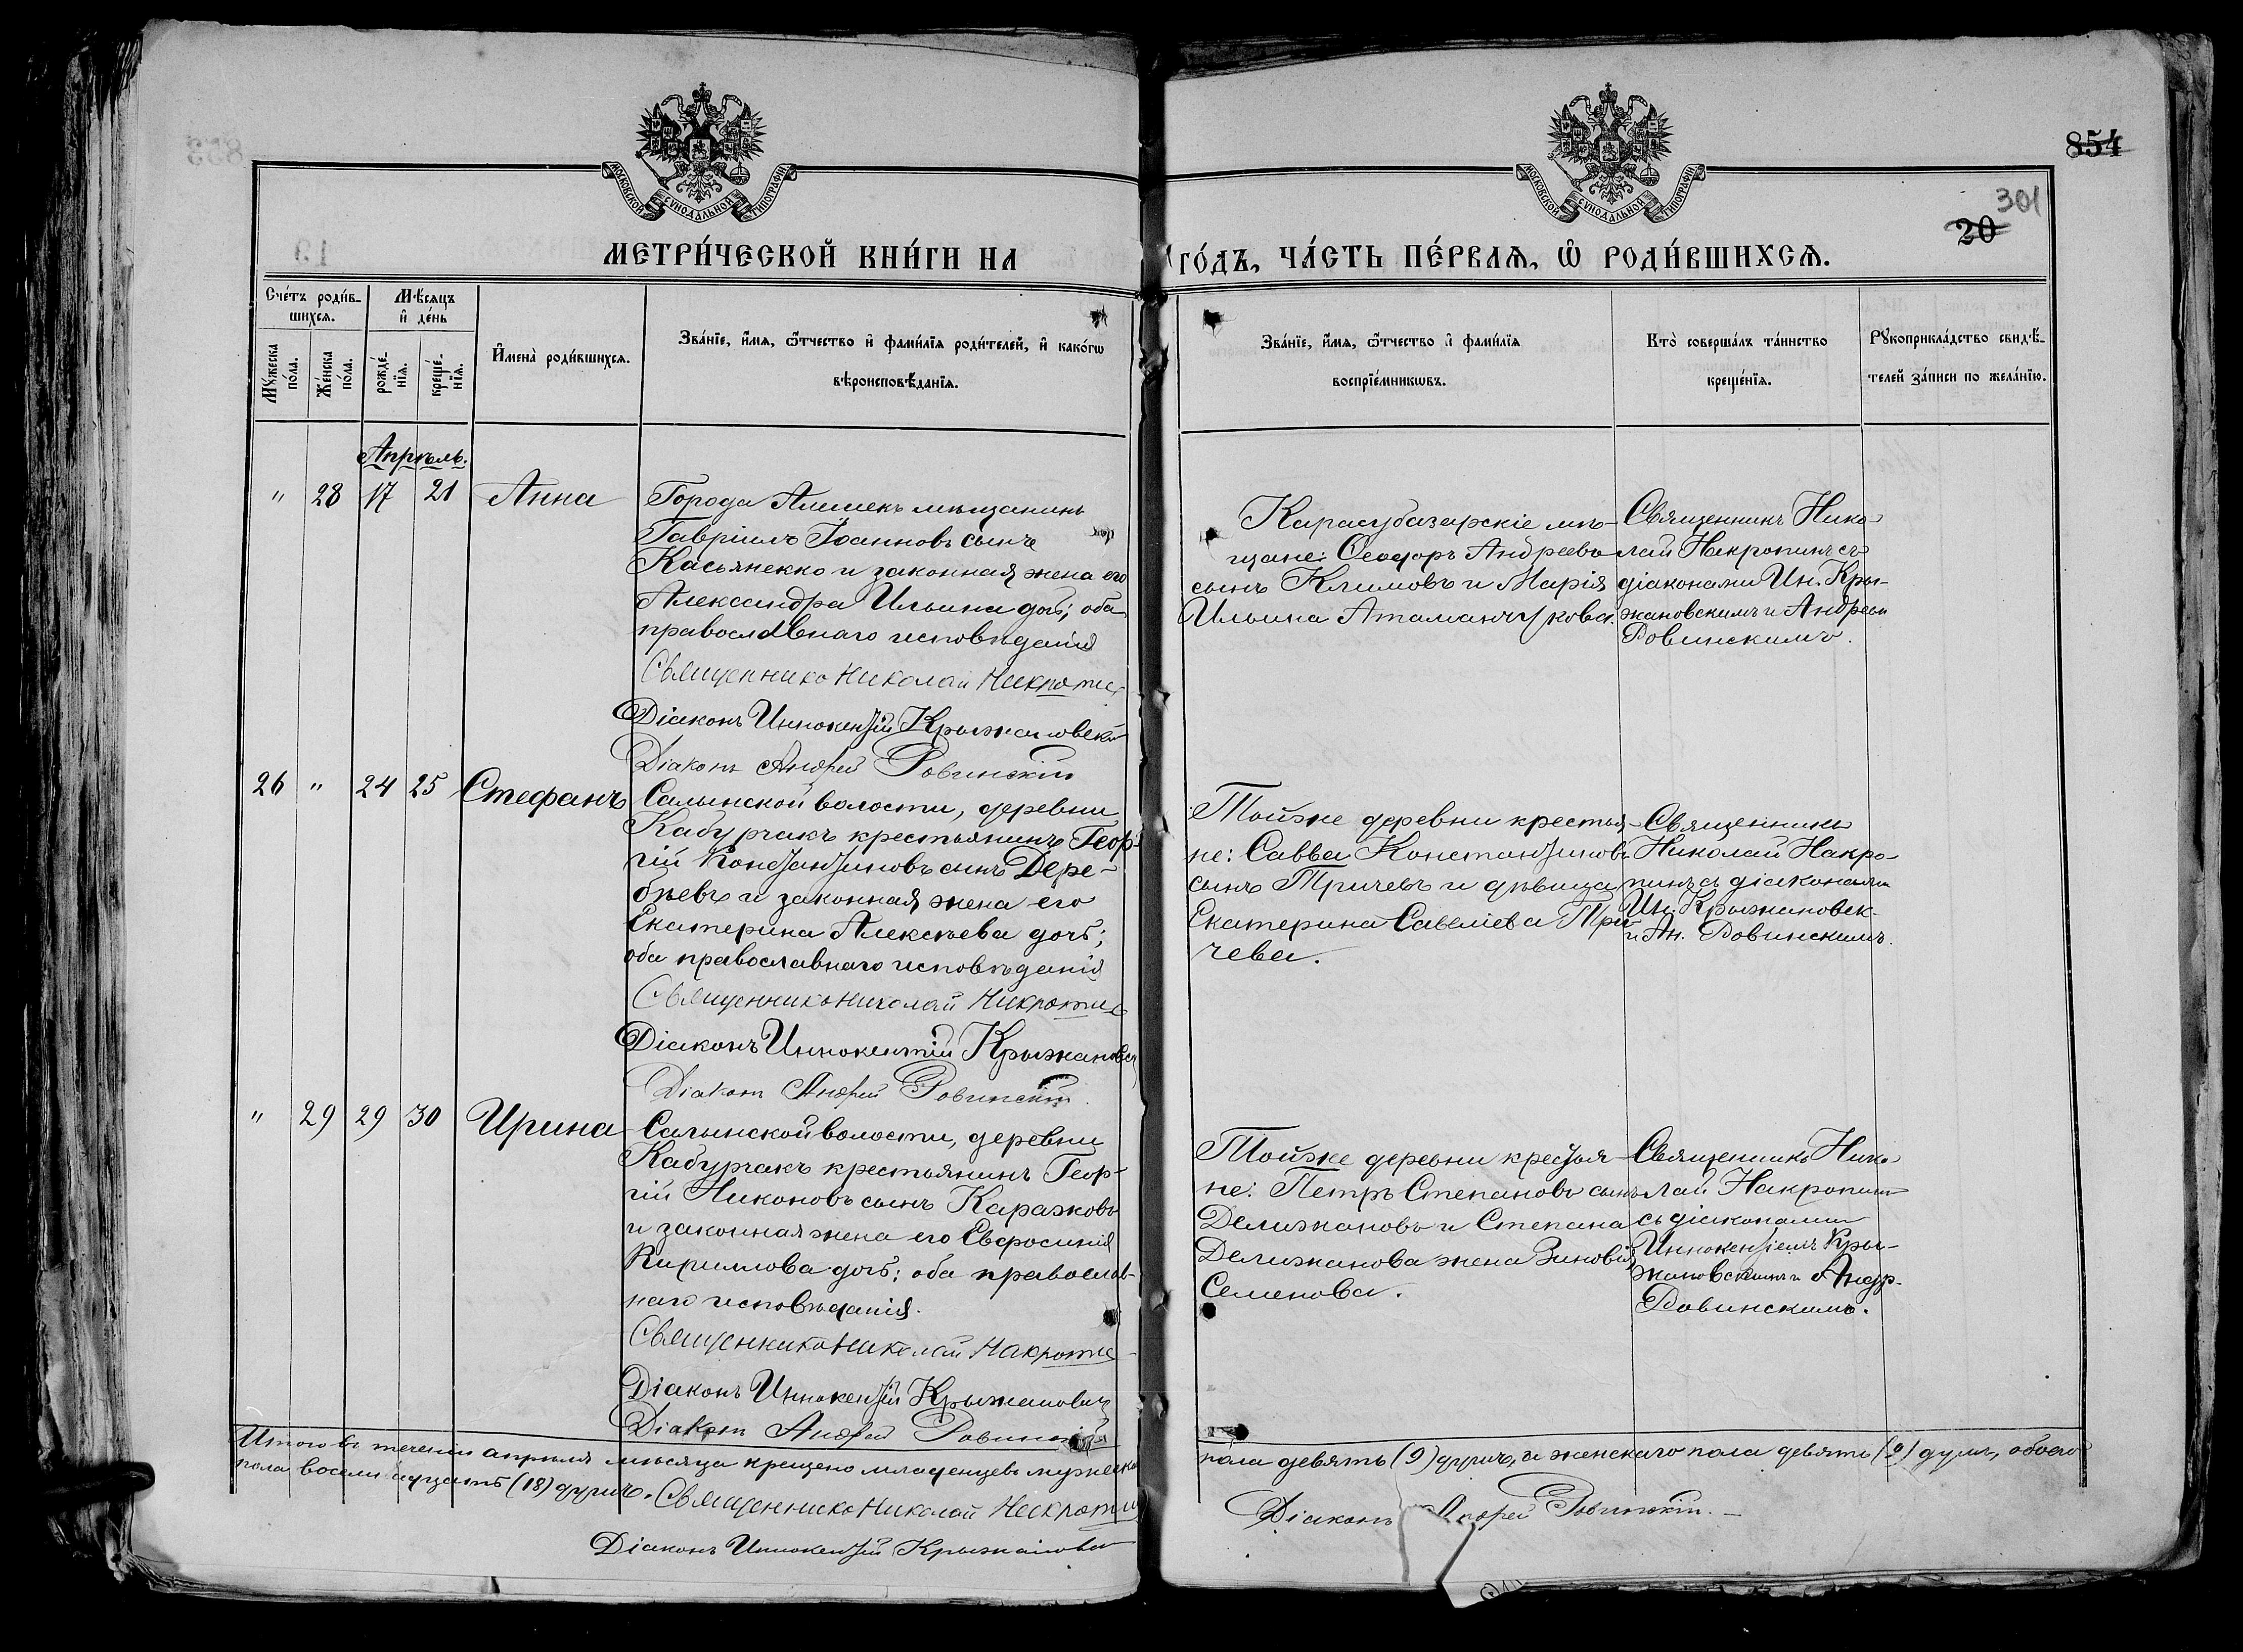 853
854
301
20
19
МОСКОВСКОЙ СУНОДАЛЬНОЙ ТИПОГРАФІИ
МОСКОВСКОЙ СУНОДАЛЬНОЙ ТИПОГРАФІИ
МЕТРИ́ЧЕСКОЙ КНИ́ГИ НА
ГО́ДЪ, ЧА́СТЬ ПЕ́РВАѦ, Ѡ҆ РОДИ́ВШИХСѦ.
Сче́тъ роди́в-
шихсѧ.
Мѣ́сѧцъ
и҆ де́нь
Мꙋ́жеска по́ла.
Же́нска по́ла.
рожде́-нїѧ.
креще́-нїѧ.
И҆мена̀ роди́вшихсѧ.
Зва́нїе, и҆́мѧ, ѻ҆́тчество и҆ фами́лїѧ роди́телей, и҆ како́гѡ
вѣроисповѣ́данїѧ.
Зва́нїе, и҆́мѧ, ѻ҆́тчество и҆ фами́лїѧ
воспрїе́мникѡвъ.
Кто̀ соверша́лъ та́инство
креще́нїѧ.
Рꙋкоприкла́дство свидѣ́-
телей за́писи по жела́нїю.
Апрѣль.
" 28 17 21 Анна
Города Алешекъ мѣщанинъ
Гавріилъ Іоанновъ сынъ
Касьяненко и законная жена его
Александра Ильина дочь; оба
православнаго исповѣданія
Священникъ Николай Накропин
Діаконъ Иннокентій Крыжановскій
Діаконъ Андрей Ровинскій
Карасубазарскіе мѣ-
щане: Ѳеодоръ Андреевъ
сынъ Климовъ и Марія
Ильина Атаманчукова.
Священникъ Нико-
лай Накропинъ съ
діаконами Ин. Кры-
жановскимъ и Андреем
Ровинскимъ.
26 " 24 25 Стефанъ
Салынской волости, деревни
Кабурчакъ крестьянинъ Геор-
гій Константиновъ сынъ Дере-
бѣевъ и законная жена его
Екатерина Алексѣева дочь;
оба православнаго исповѣданія
Священникъ Николай Накропин
Діаконъ Иннокентій Крыжановск
Діаконъ Андрей Ровинскій
Тойже деревни крестья-
не: Савва Константиновъ
сынъ Тричевъ и дѣвица
Екатерина Савеліева Три-
чева.
Священникъ
Николай Накро-
пинъ съ діаконами
Ин. Крыжановск-
и Ан. Ровинскимъ.
" 29 29 30 Ирина
Салынской волости, деревни
Кабурчакъ крестьянинъ Геор-
гій Никоновъ сынъ Каражовъ
и законная жена его Евфросинія
Кириллова дочь; оба православ-
наго исповѣданія.
Священникъ Николай Накропин
Діаконъ Иннокентій Крыжановск
Діаконъ Андрей Ровинскій
Тойже деревни крестья-
не: Петръ Степановъ сынъ
Делижановъ и Степана
Делижанова жена Зиновія
Семенова.
Священникъ Нико-
лай Накропин
съ діаконами
Иннокентіемъ Кры-
жановскимъ и Андр.
Ровинскимъ.
Итого въ теченіи апрѣля мѣсяца крещено младенцевъ мужеска
пола девять (9) душъ, а женскаго пола девять (9) душъ, обоего
пола восемнадцать (18) душъ. Священникъ Николай Накропин
Діаконъ Андрей Ровинскій.
Діаконъ Иннокентій Крыжановск